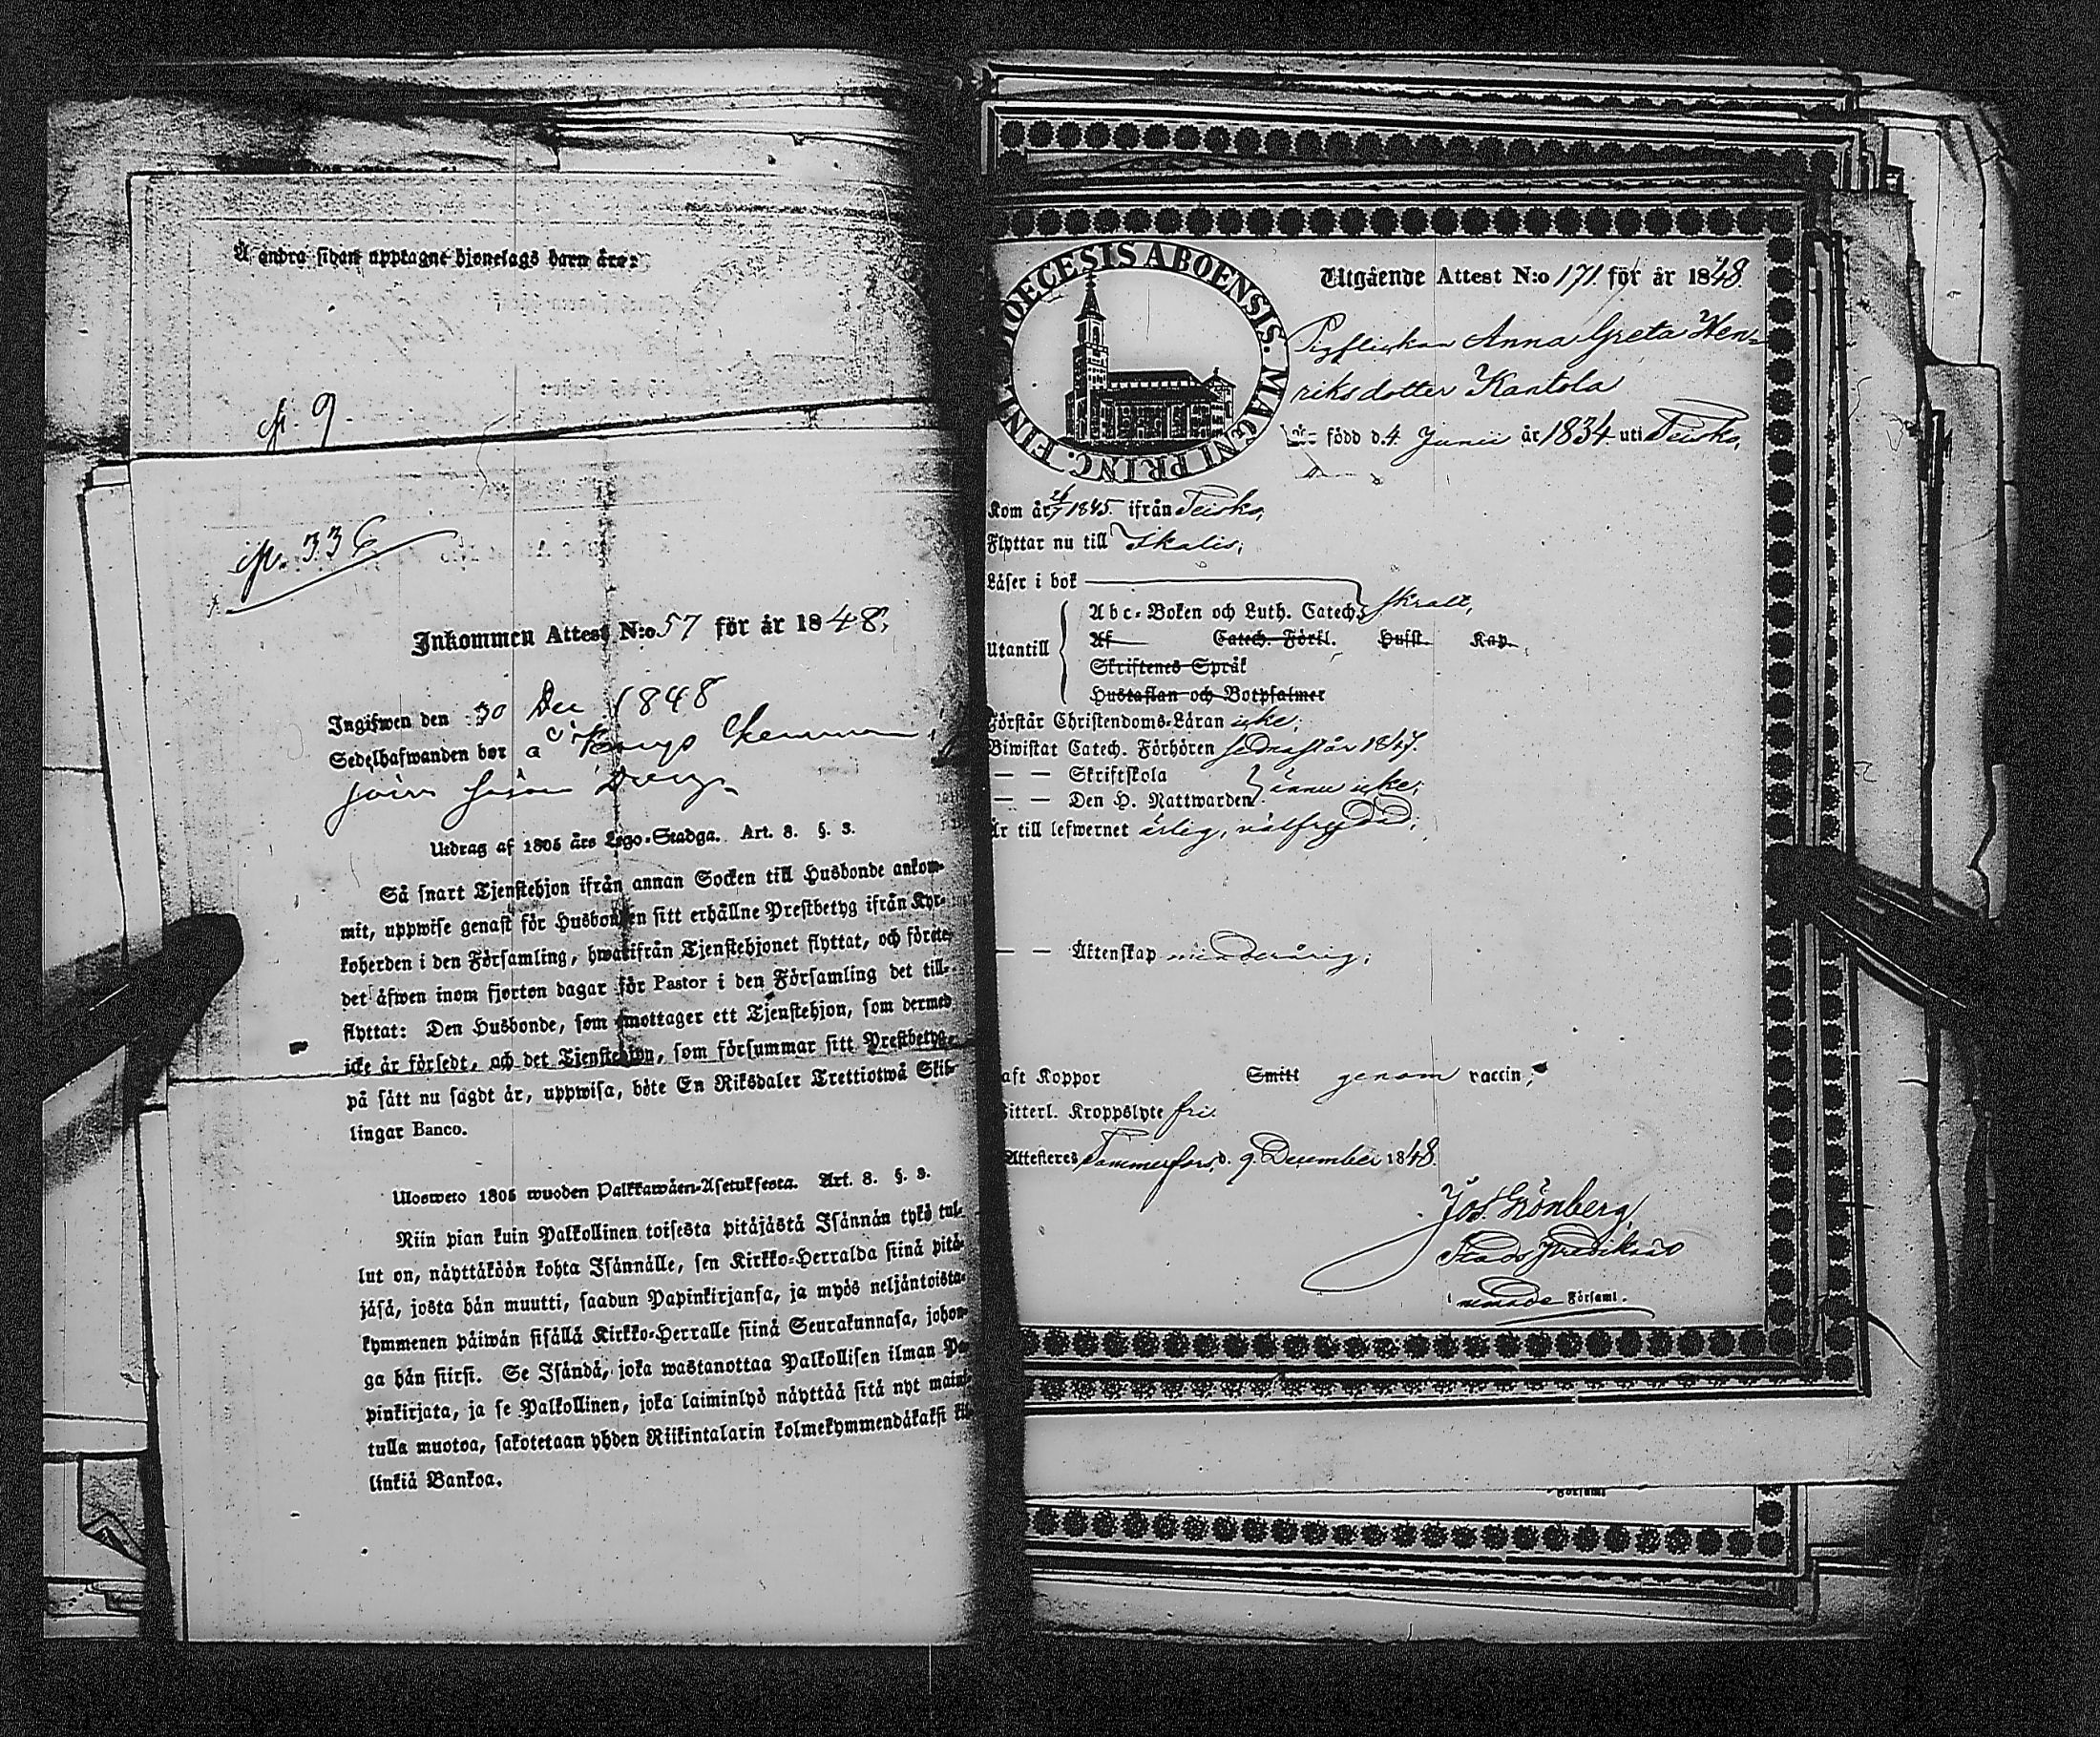 Å andra sidan upptagne hjonelags barn äro:
p. 9
p. 336
Inkommen Attest N:o 57 för år 1848,
Ingifwen den 30 Dec 1848
Sedelhafwanden bor å
Utdrag af 1805 års Lego-Stadga. Art. 8. §. 3.
Så snart Tjenstehjon ifrån annan Socken till Husbonde ankom-
mit, uppwise genast för Husbonden sitt erhållne Prestbetyg ifrån Kyr-
koherden i den Församling, hwarifrån Tjenstehjonet flyttat, och förete
det äfwen inom fjorton dagar för Pastor i den Församling det till-
flyttat: Den Husbonde, som emottager ett Tjenstehjon, som dermed
icke är försedt, och det Tjenstehjon, som försummar sitt Prestbetyg,
på sätt nu sagdt är, uppwisa, böte En Riksdaler Trettiotwå Skil-
lingar Banco.
Ulosweto 1805 wuoden Palkkawäen-Asetuksesta. Art. 8. §. 3.
Niin pian kuin Palkollinen toisesta pitäjästä Isännän tykö tul-
lut on, näyttäköön kohta Isännälle, sen Kirkko-Herralda siinä pitä-
jäsä, josta hän muutti, saadun Papinkirjansa, ja myös neljäntoista-
kymmenen päiwän sisällä Kirkko-Herralle siinä Seurakunnasa, johon-
ga hän siirsi. Se Isändä, joka wastanottaa Palkollisen ilman Pa-
pinkirjata, ja se Palkollinen, joka laiminlyö näyttää sitä nyt mainit-
tulla muotoa, sakotetaan yhden Riikintalarin kolmekymmendäkaksi kil-
linkiä Bankoa.
DIOECESIS ABOENSIS. MAGNI PRINC. FINL.
Utgående Attest N:o 171. för år 1848.
Pigflickan Anna Greta Hen-
riksdotter Kantola
född d. 4 Junii år 1834 uti Teisko,
Kom år 1845 ifrån Teisko,
Flyttar nu till Ikalis,
Läser i bok
Abc-Boken och Luth. Catech. skralt,
Utantill
Af Catech. Förkl. Husst. Kap.
Skriftenes Språk
Hustaflan och Botpsalmer
Förstår Christendoms-Läran icke;
Biwistat Catech. Förhören sednast år 1847.
— — Skriftskola
— — Den H. Nattwarden ännu icke;
Är till lefwernet ärlig, välfrejdad;
— — Äktenskap minderårig;
aft Koppor Smitt genom vaccin,
itterl. Kroppslyte fri.
Attesteres Tammerfors, d. 9 December 1848.
Jos. Grönberg,
Stads Predikant
i nemnde Församl.
Församl